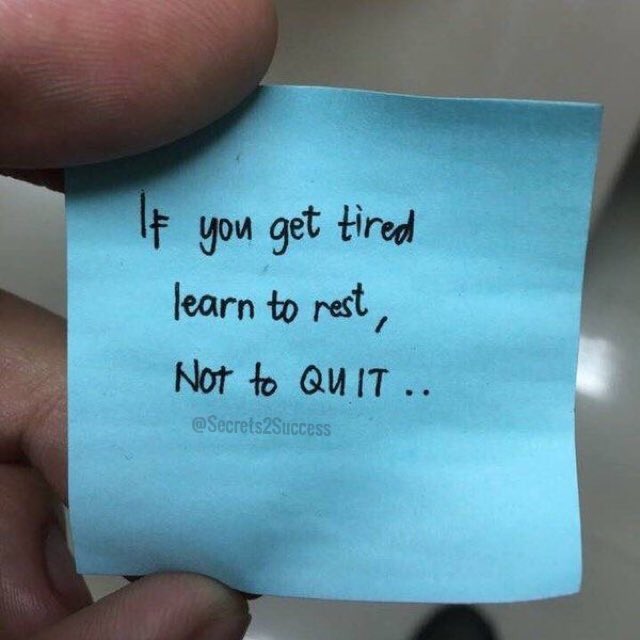 If you get tired
learn to rest,
NOT to QUIT ..
@Secrets2Success